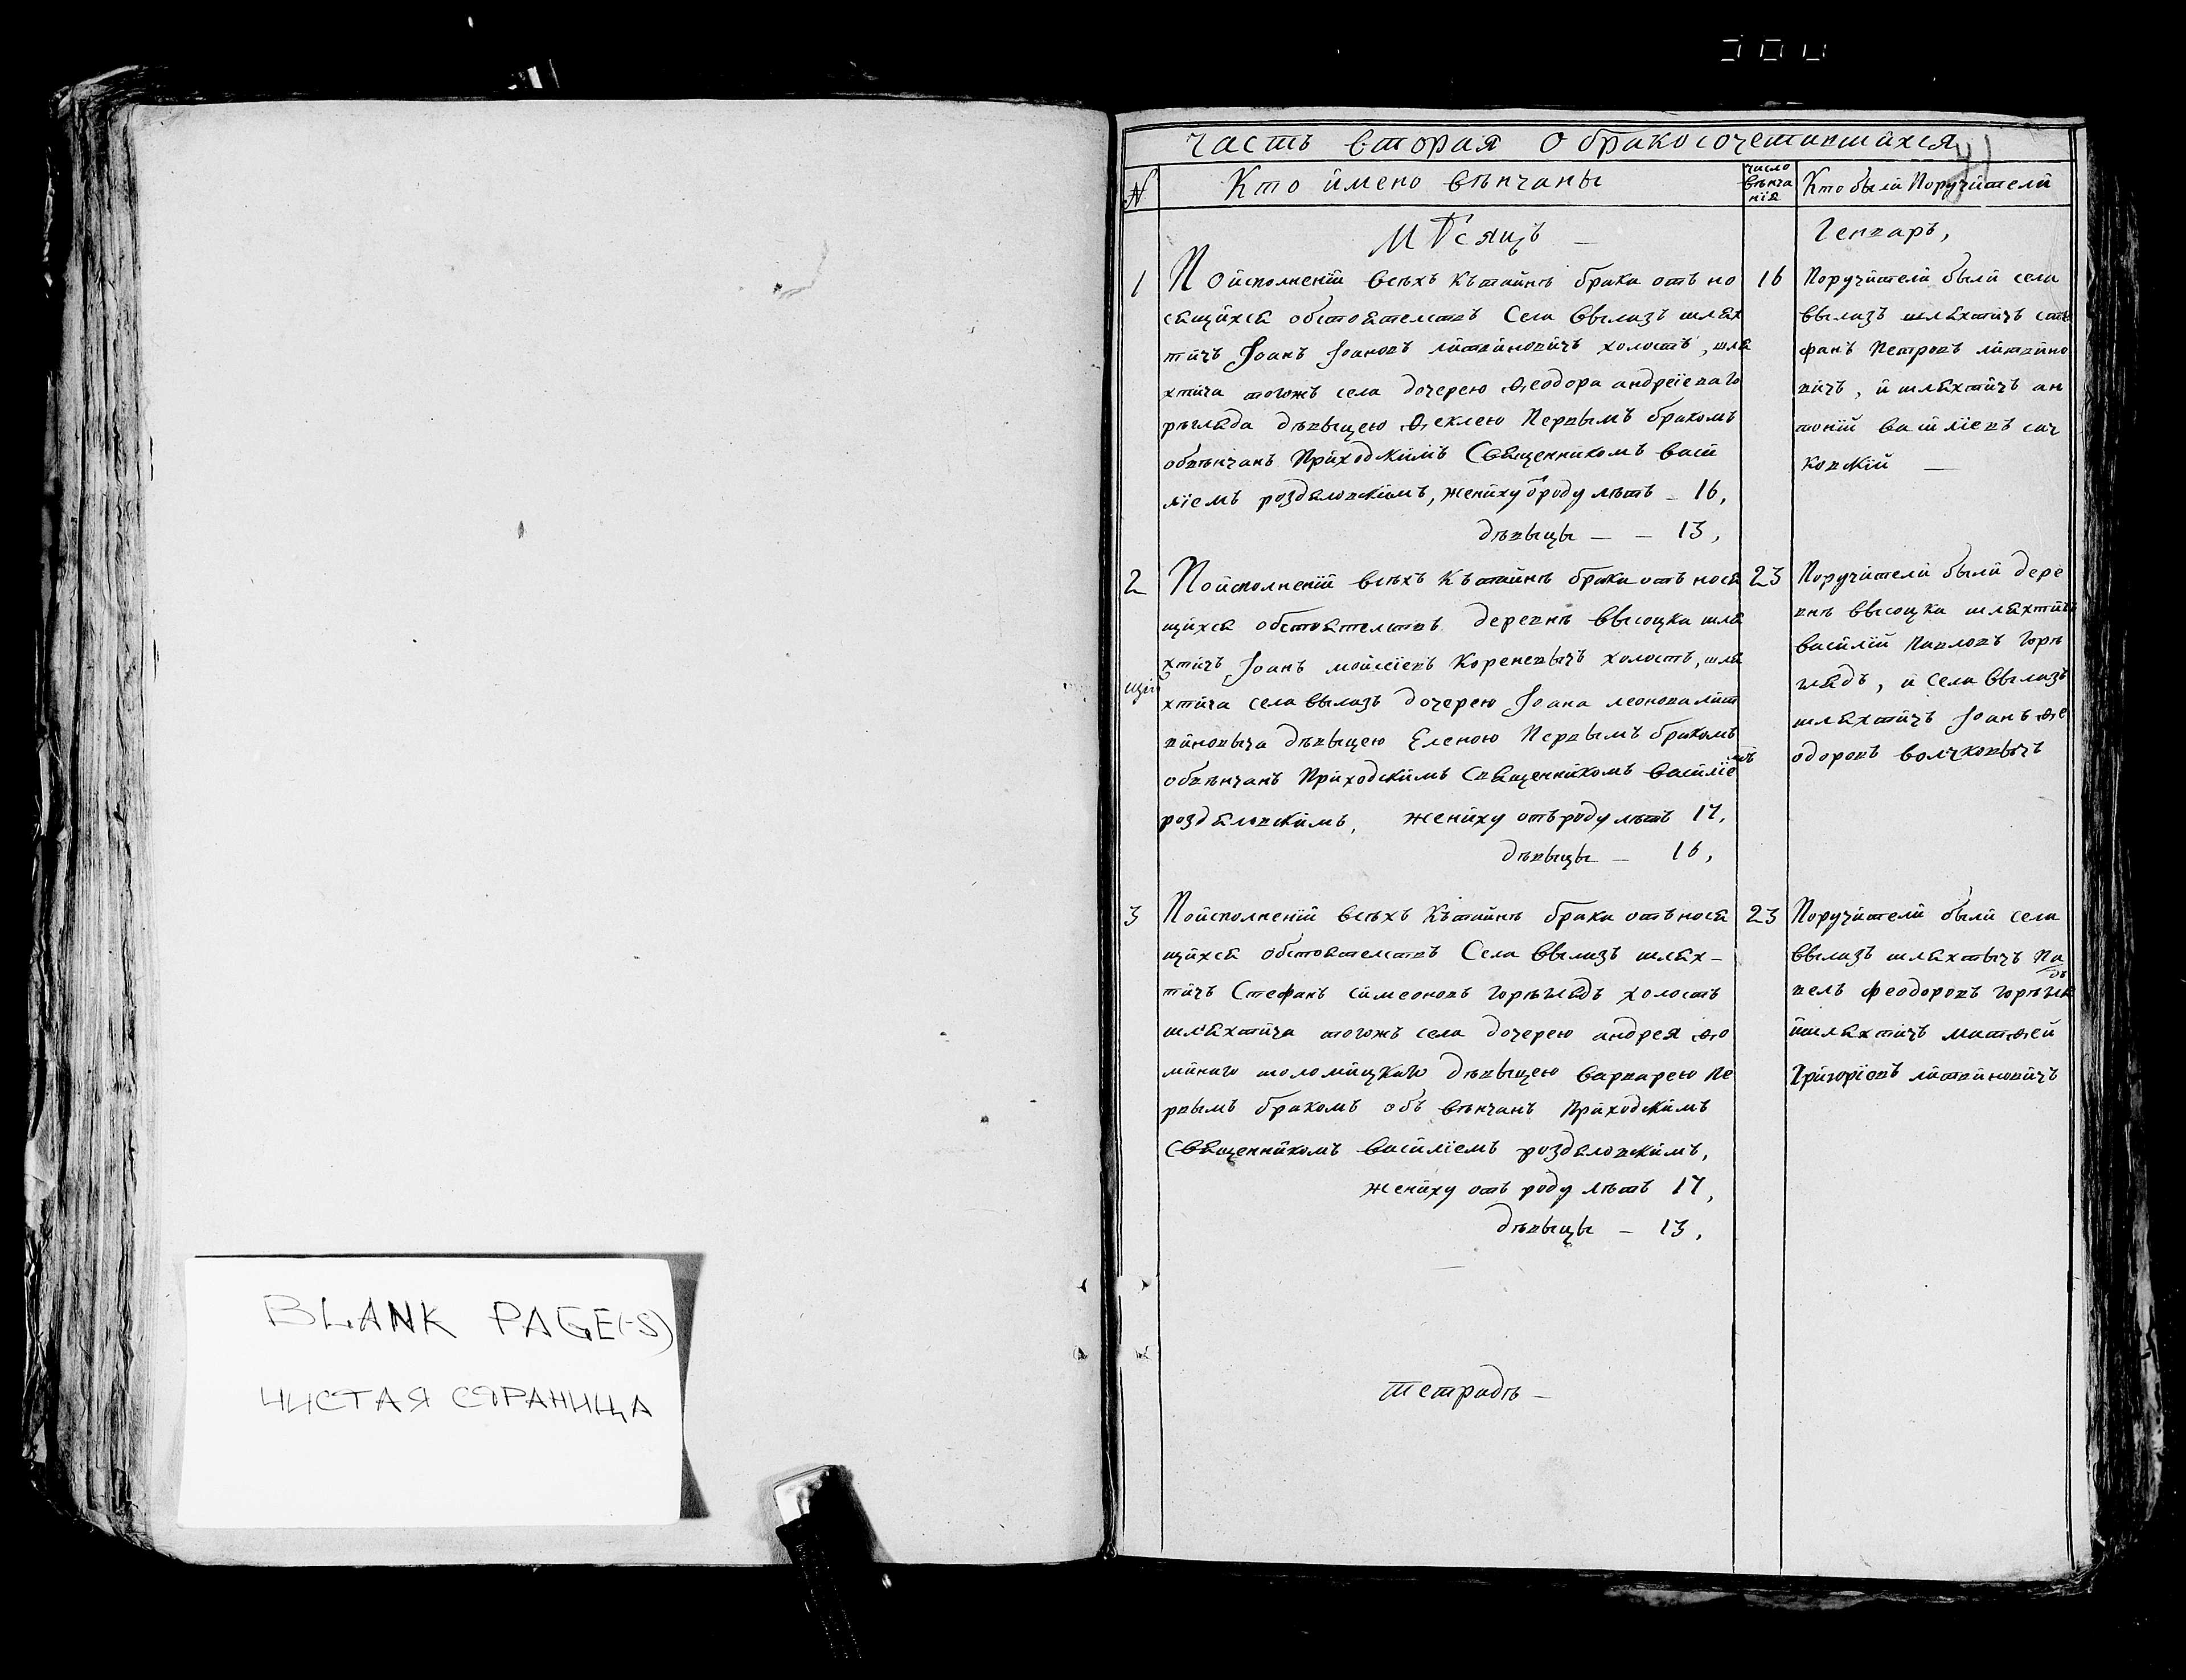 BLANK PAGE(-S)
ЧИСТАЯ СТРАНИЦА
часть вторая о бракосочетавшихся
N
Кто имено вѣнчаны
число вѣнчанія
Кто были Поручители
Мѣсяцъ —
Генваръ,
1
Поисполненіи всѣхъ Къ тайнѣ брака отъ но
сящихся обстоятелствъ Села Ввылазъ шлях
тичъ Іоанъ Іоановъ литвиновичъ холостъ, шля
хтича тогожъ села дочерею Ѳеодора андреіеваго
рѣгляда дѣвыцею Ѳеклею Первымъ бракомъ
обвѣнчанъ Приходскимъ Священникомъ васи
ліемъ роздяловскимъ, жениху ѿроду лѣтъ — 16,
дѣвыцы — — 13,
16
Поручители были села
ввылазъ шляхтичъ сте
фанъ Петровъ литвино
вичъ, и шляхтичъ ан
тоній василіевъ сач
ковскій —
2
Поисполненіи всѣхъ Къ тайнѣ брака отъ нося
щихся обстоятелствъ деревнѣ Ввысоцка шля
хтичъ Іоанъ мойсіевъ Кореневычъ холостъ, шля
хтича села вылазъ дочерею Іоана леонова лит
виновыча дѣвыцею Еленою Первымъ бракомъ
обвѣнчанъ Приходскимъ Священникомъ василіемъ
роздяловскимъ, жениху отъ роду лѣтъ 17,
дѣвыцы — 16,
23
Поручители были дере
внѣ ввысоцка шляхтичъ
василій Павловъ Горѣ
глядъ, и Села Ввылазъ
шляхтичъ Іоанъ Ѳе
одоровъ волчковычъ
3
Поисполненіи всѣхъ Къ тайнѣ брака отъ нося
щихся обстоятелствъ Села Ввылазъ шлях-
тичъ Стефанъ симеоновъ горѣглядъ холостъ
шляхтича тогожъ села дочерею андрея Ѳо
минаго толомицкаго дѣвыцею варварею Пе
рвымъ бракомъ объ вѣнчанъ Приходскимъ
Священникомъ василіемъ роздяловскимъ,
жениху отъ роду лѣтъ 17,
дѣвыцы — 13,
23
Поручители были села
Ввылазъ шляхтычъ Па
велъ феодоровъ горѣглядъ
ишляхтичъ матѳей
Григоріовъ литвиновичъ
тетрадь —